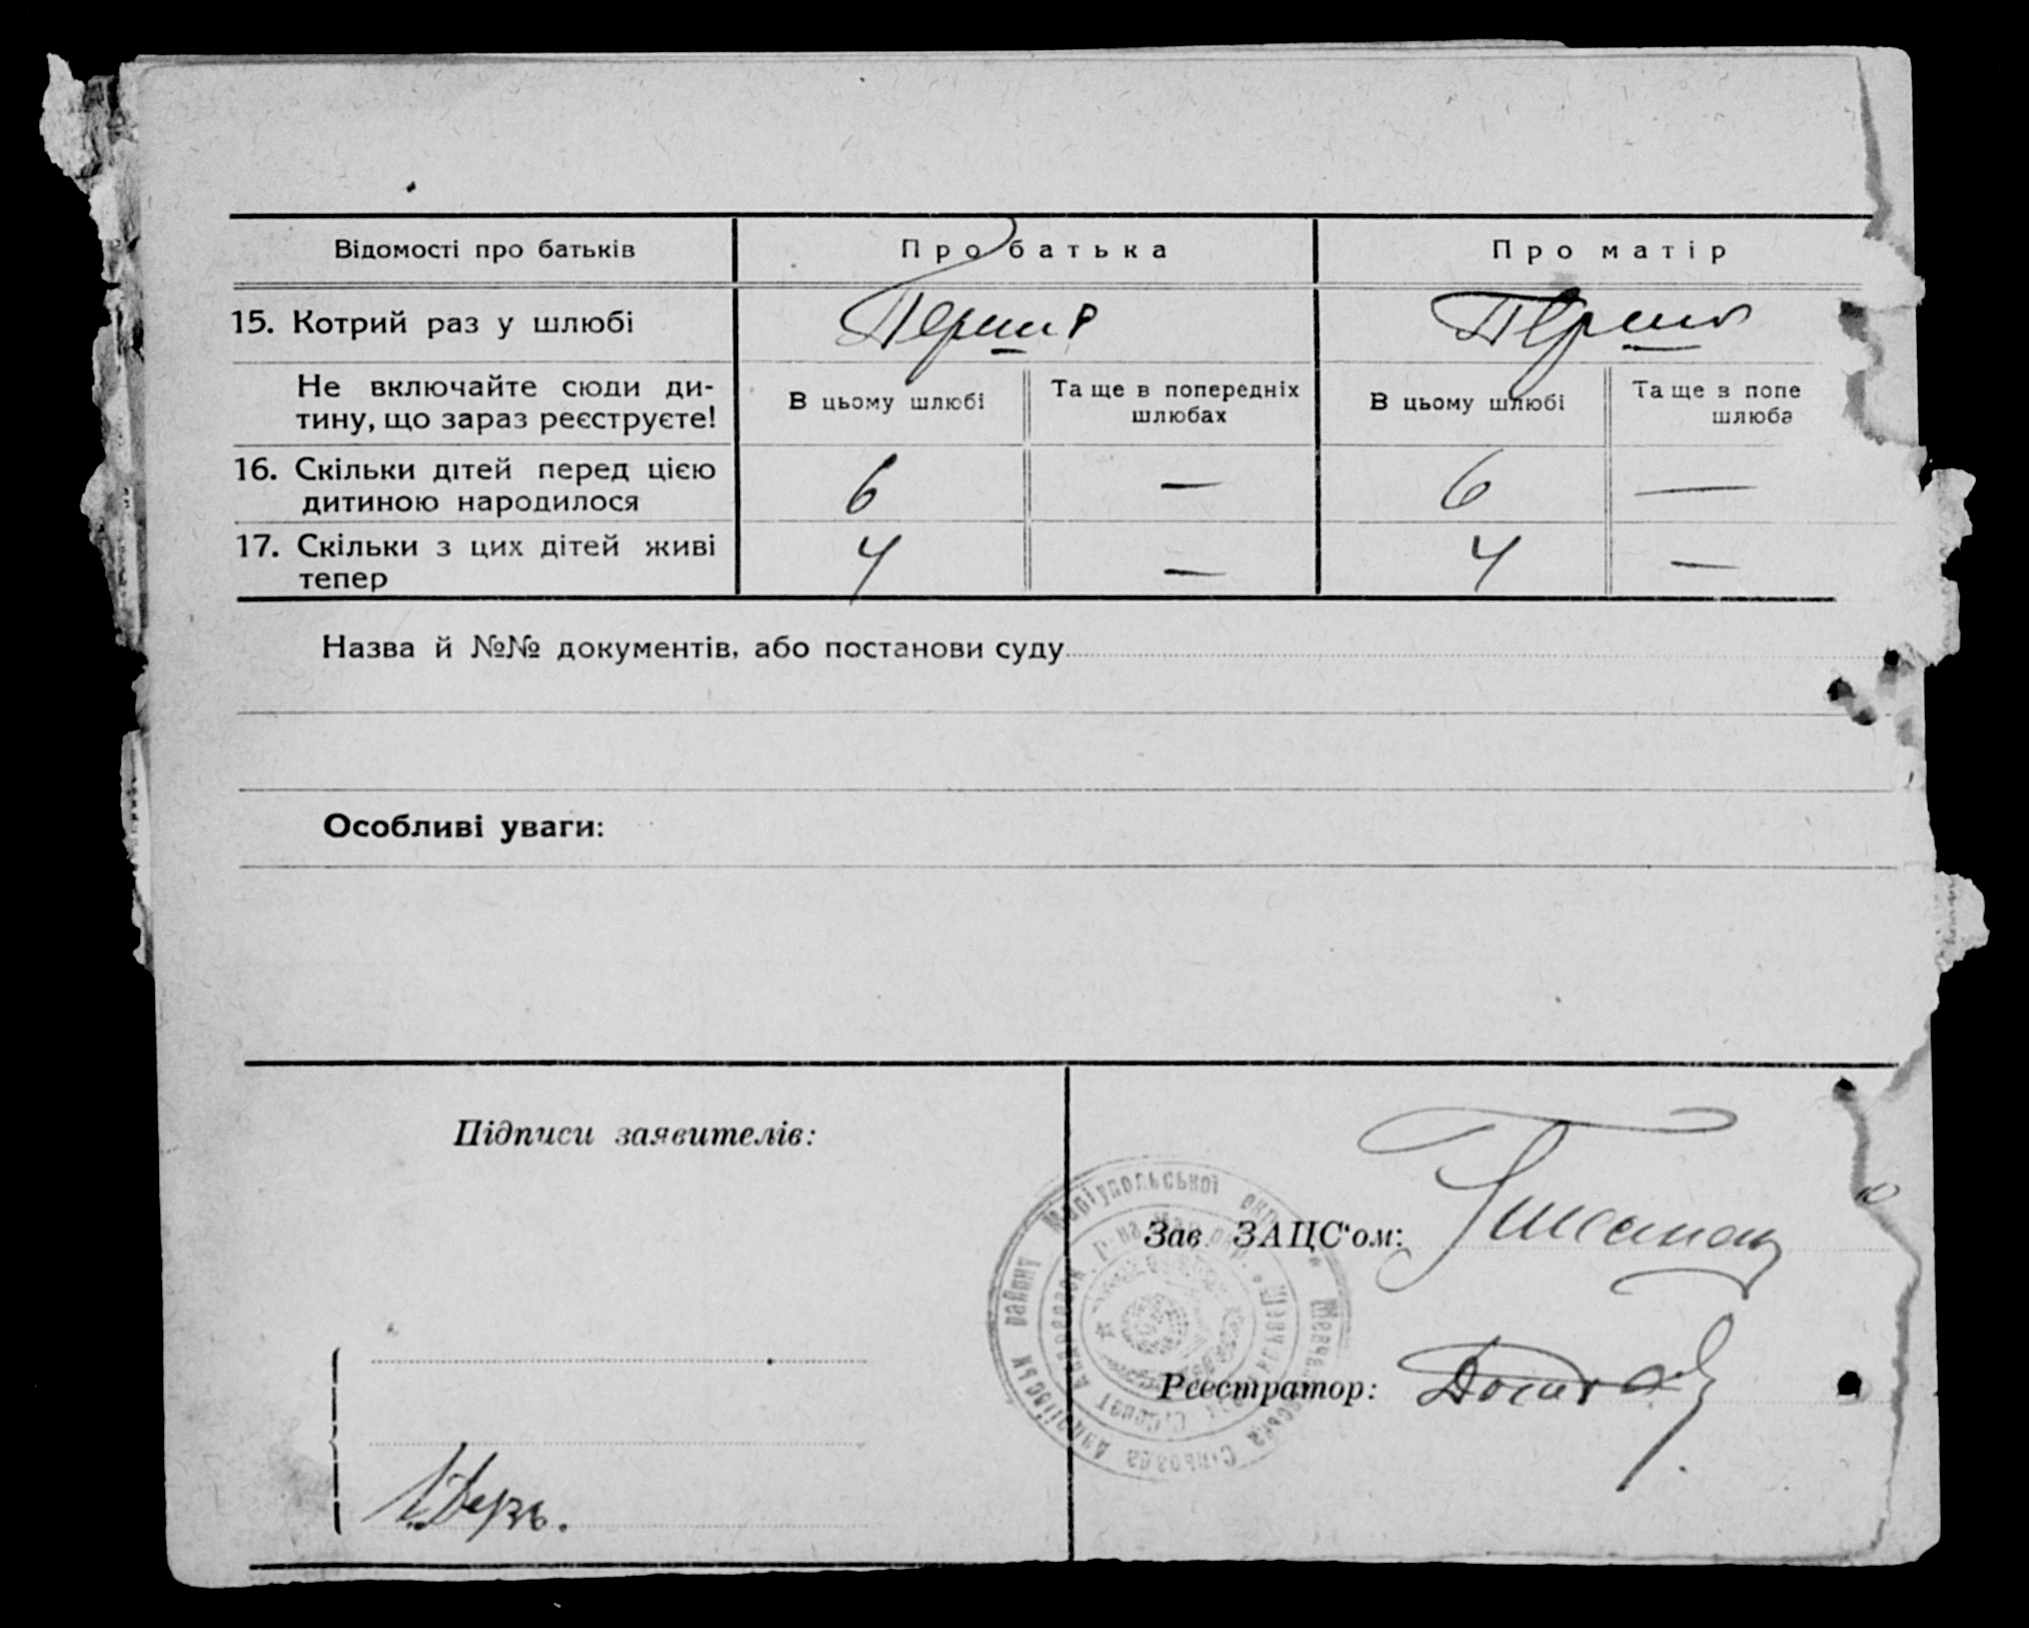 Відомості про батьків
Про батька
Про матір
15. Котрий раз у шлюбі
Перши
Перши
Не включайте сюди ди-
тину, що зараз реєструєте!
В цьому шлюбі
Та ще в попередніх
шлюбах
В цьому шлюбі
Та ще в попе
шлюба
16. Скільки дітей перед цією
дитиною народилося
6
—
6
—
17. Скільки з цих дітей живі
тепер
4
—
4
—
Назва й №№ документів, або постанови суду
Особливі уваги:
Підписи заявителів:
Зав. ЗАЦС'ом:
Реєстратор:
району Маріупольської окр.
Сільрада